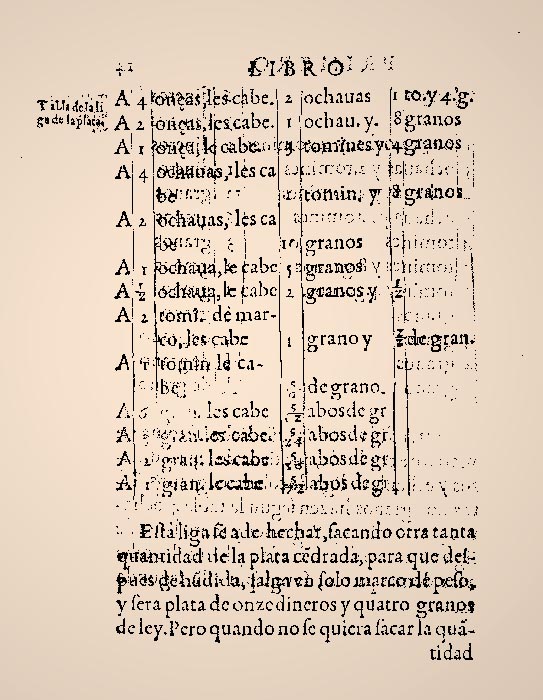 42 LIBRO
Tabla de la li
ga de la plata.
A 4 onças, les cabe. 2 ochauas 1 to. y 4. g.
A 2 onças, les cabe. 1 ochau. y. 8 granos
A 1 onça, le cabe. tomines y 4 granos
A 4 ochauas, les ca
be tomin, y 8 granos
A 2 ochauas, les ca
be 10 granos
A 1 ochaua, le cabe 5 granos
A ½ ochaua, le cabe 2 granos y ½
A 2 tomi. de mar-
co, les cabe 1 grano y de gran.
A 1 tomin le ca-
be de grano.
A 6 les cabe abos de gr
A gran. les cabe. abos de gr
A gran. les cabe abos de gr
A 1 gran. le cabe abos de gr
Esta liga se a de hechar, sacando otra tanta
quantidad de la plata cẽdrada, para que des-
pues de hũdida, salga vn solo marco de peso,
y sera plata de onze dineros y quatro granos
de ley. Pero quando no se quiera sacar la quã-
tidad